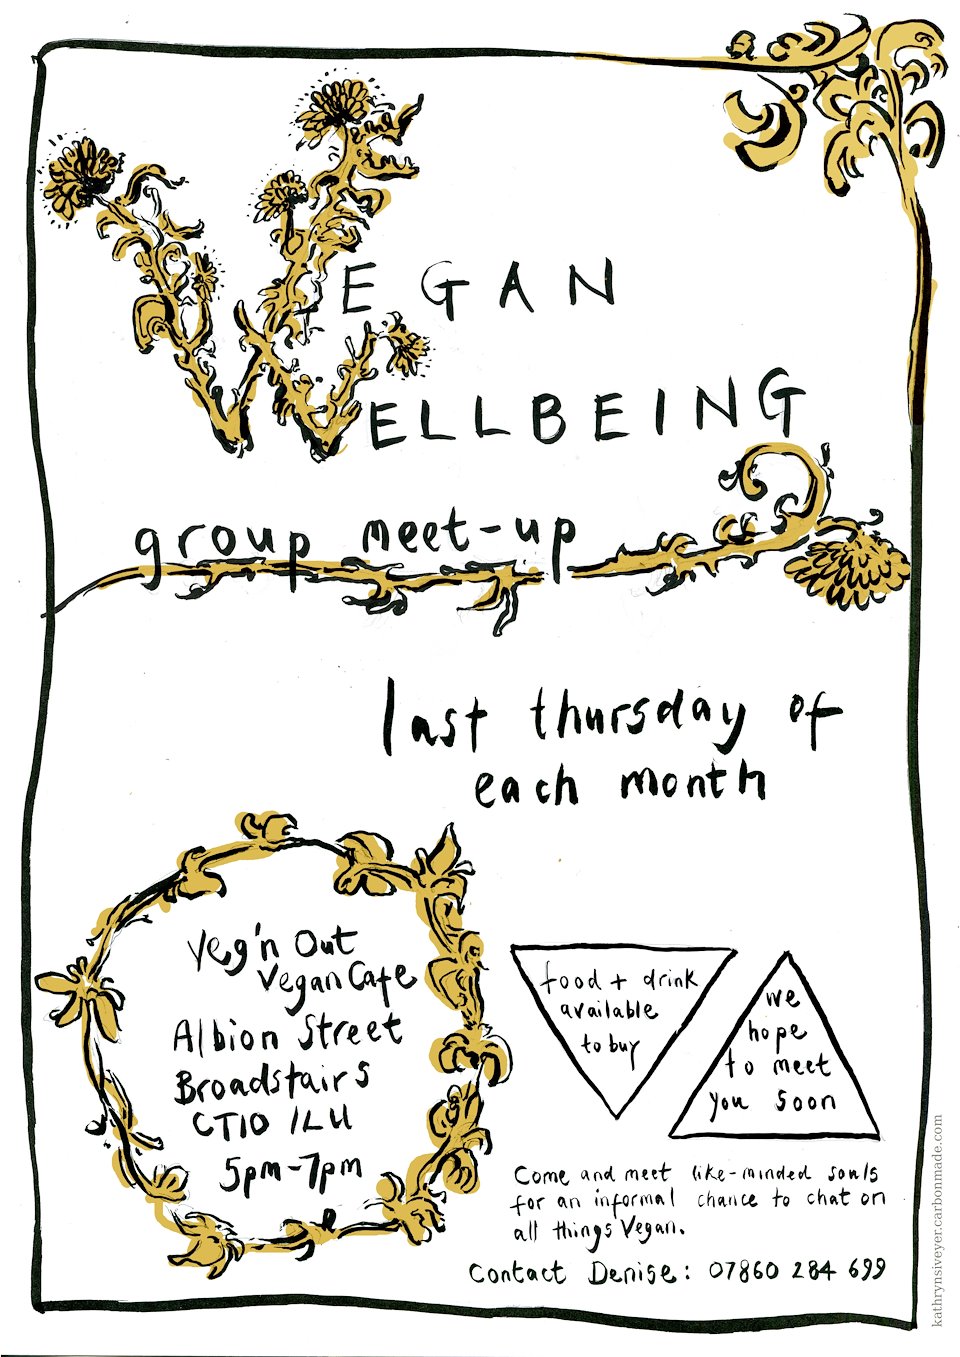 VEGAN
WELLBEING
group meet-up
last thursday of
each month
Veg'n Out
Vegan Cafe
Albion Street
Broadstairs
CT10 1LU
5pm-7pm
food + drink
available
to buy
we
hope
to meet
you soon
Come and meet like-minded souls
for an informal chance to chat on
all things Vegan.
Contact Denise: 07860 284 699
kathrynsiveyer.carbonmade.com